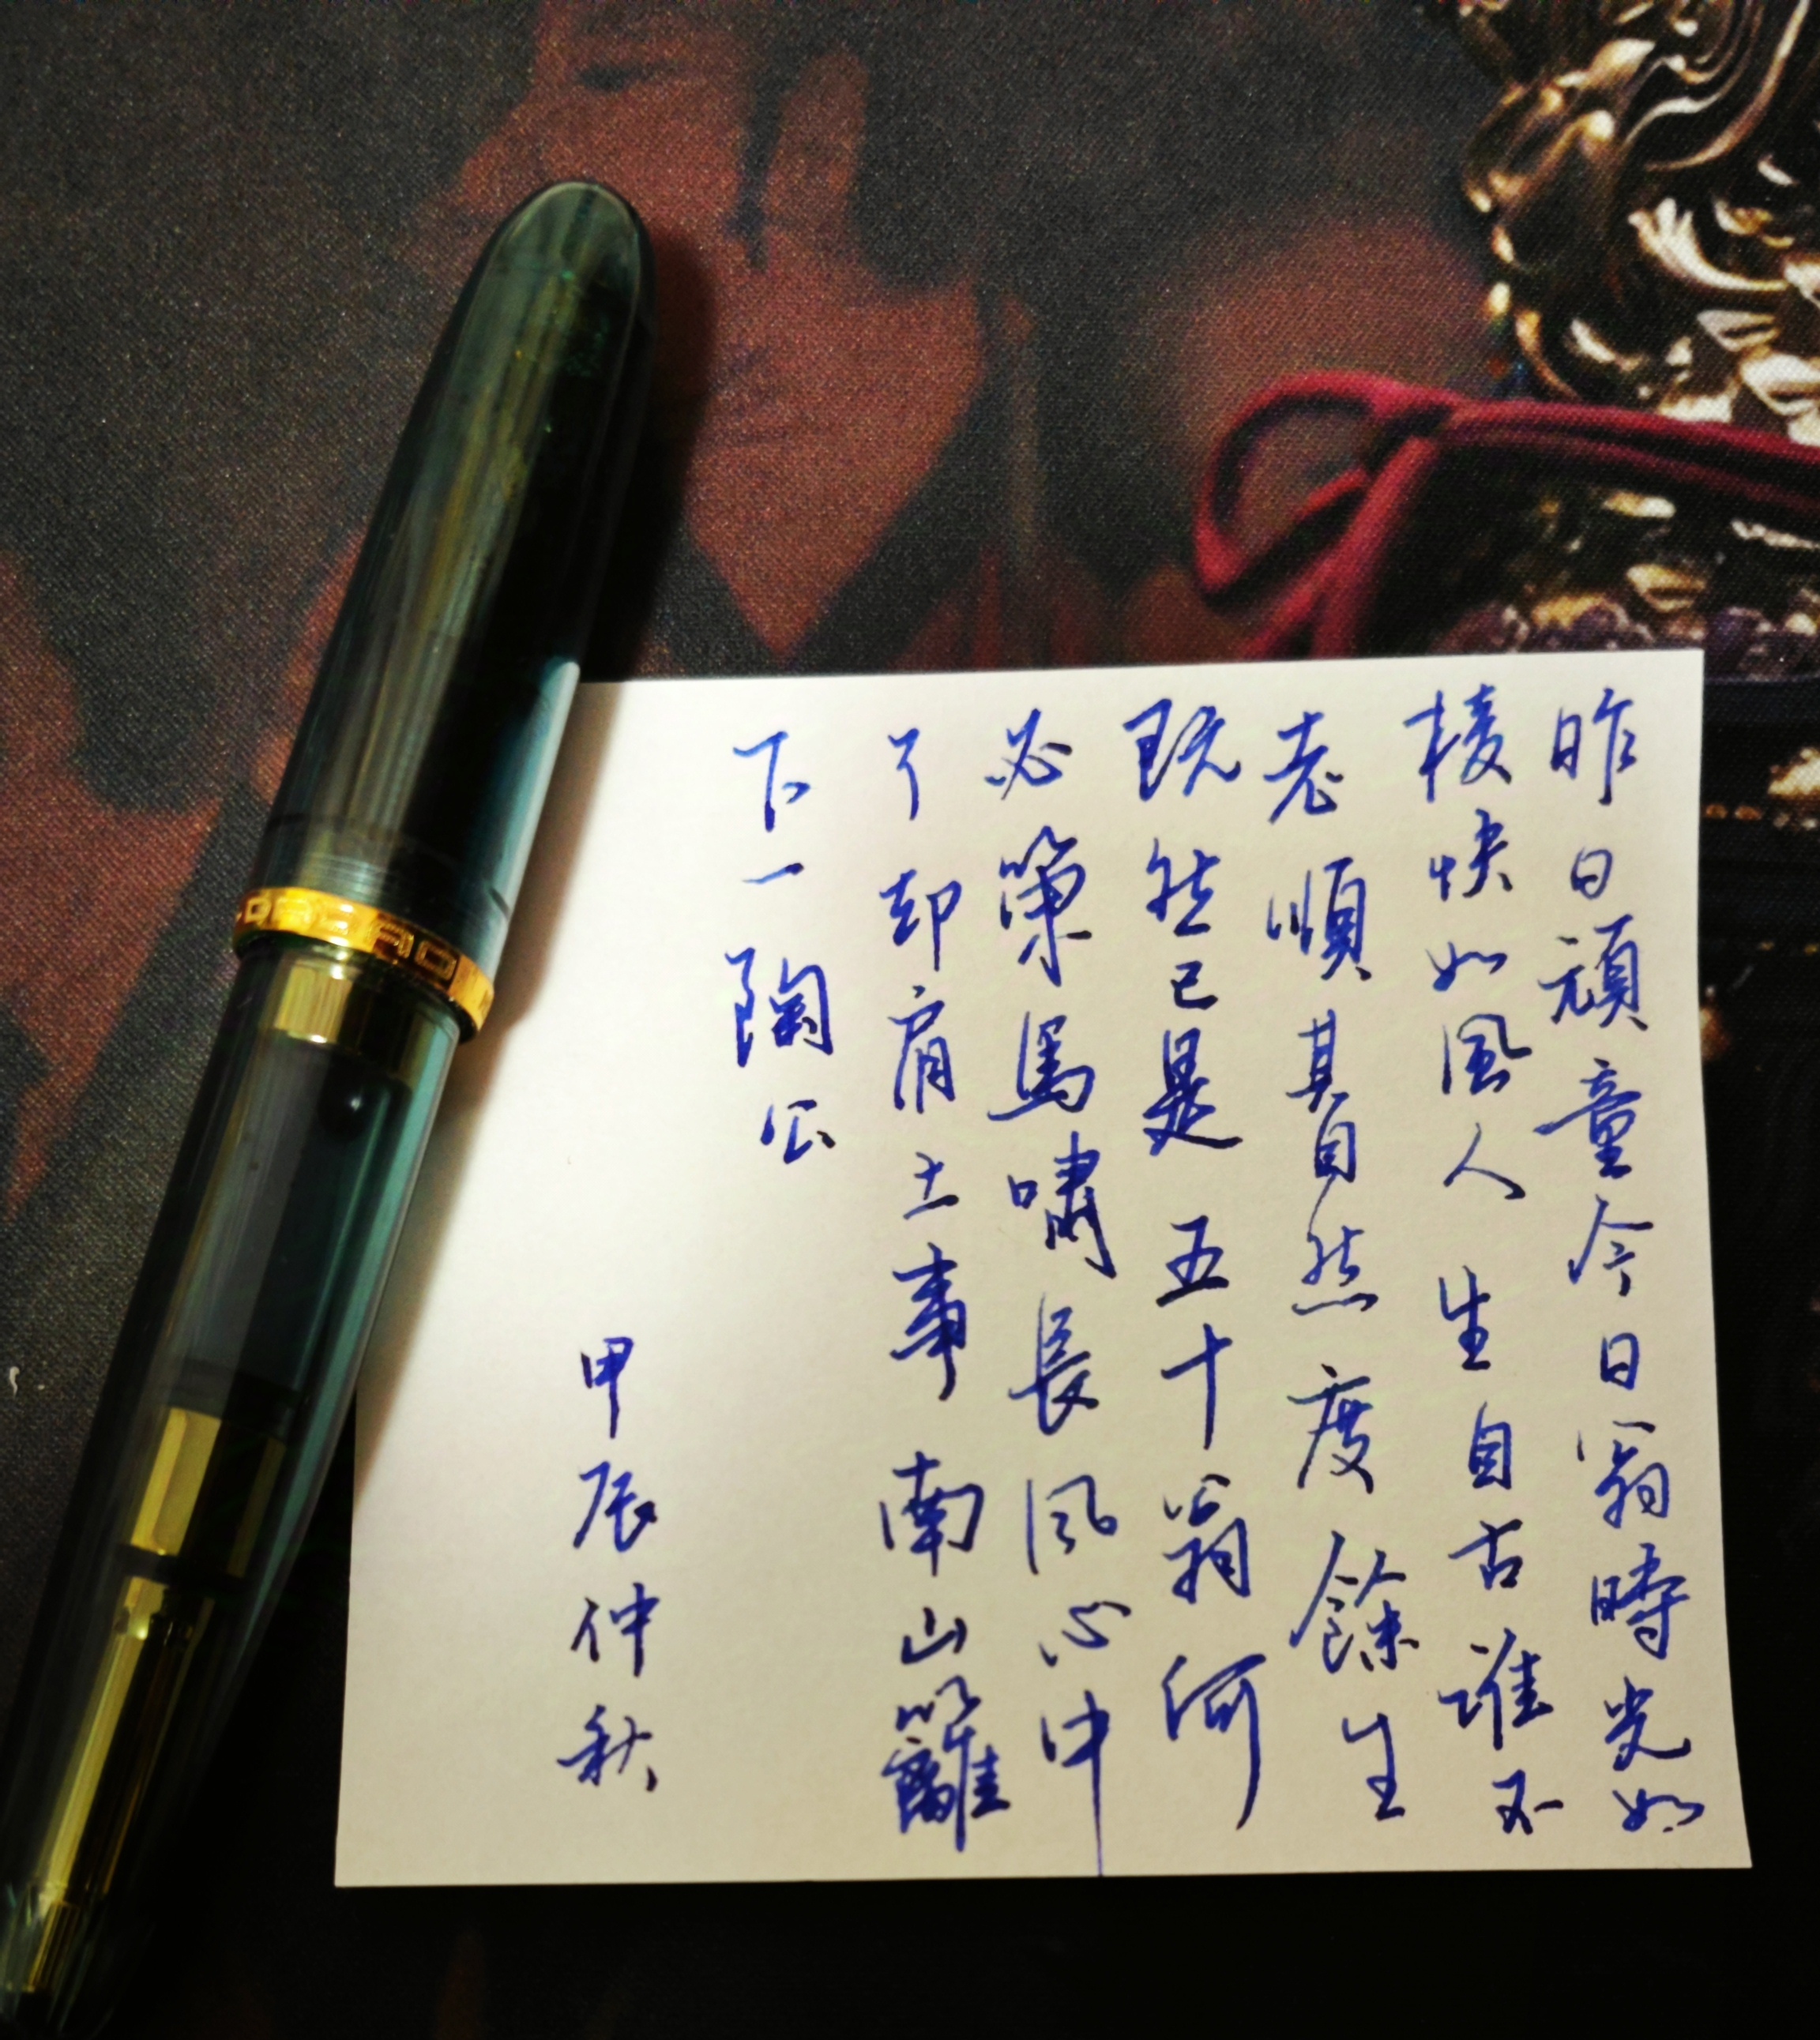 昨日頑童今日翁時光如
梭快如風人生自古誰不
老順其自然度餘生
既然已是五十翁何
必策馬嘯長风心中
了却肩上事南山籬
下一陶公
甲辰仲秋